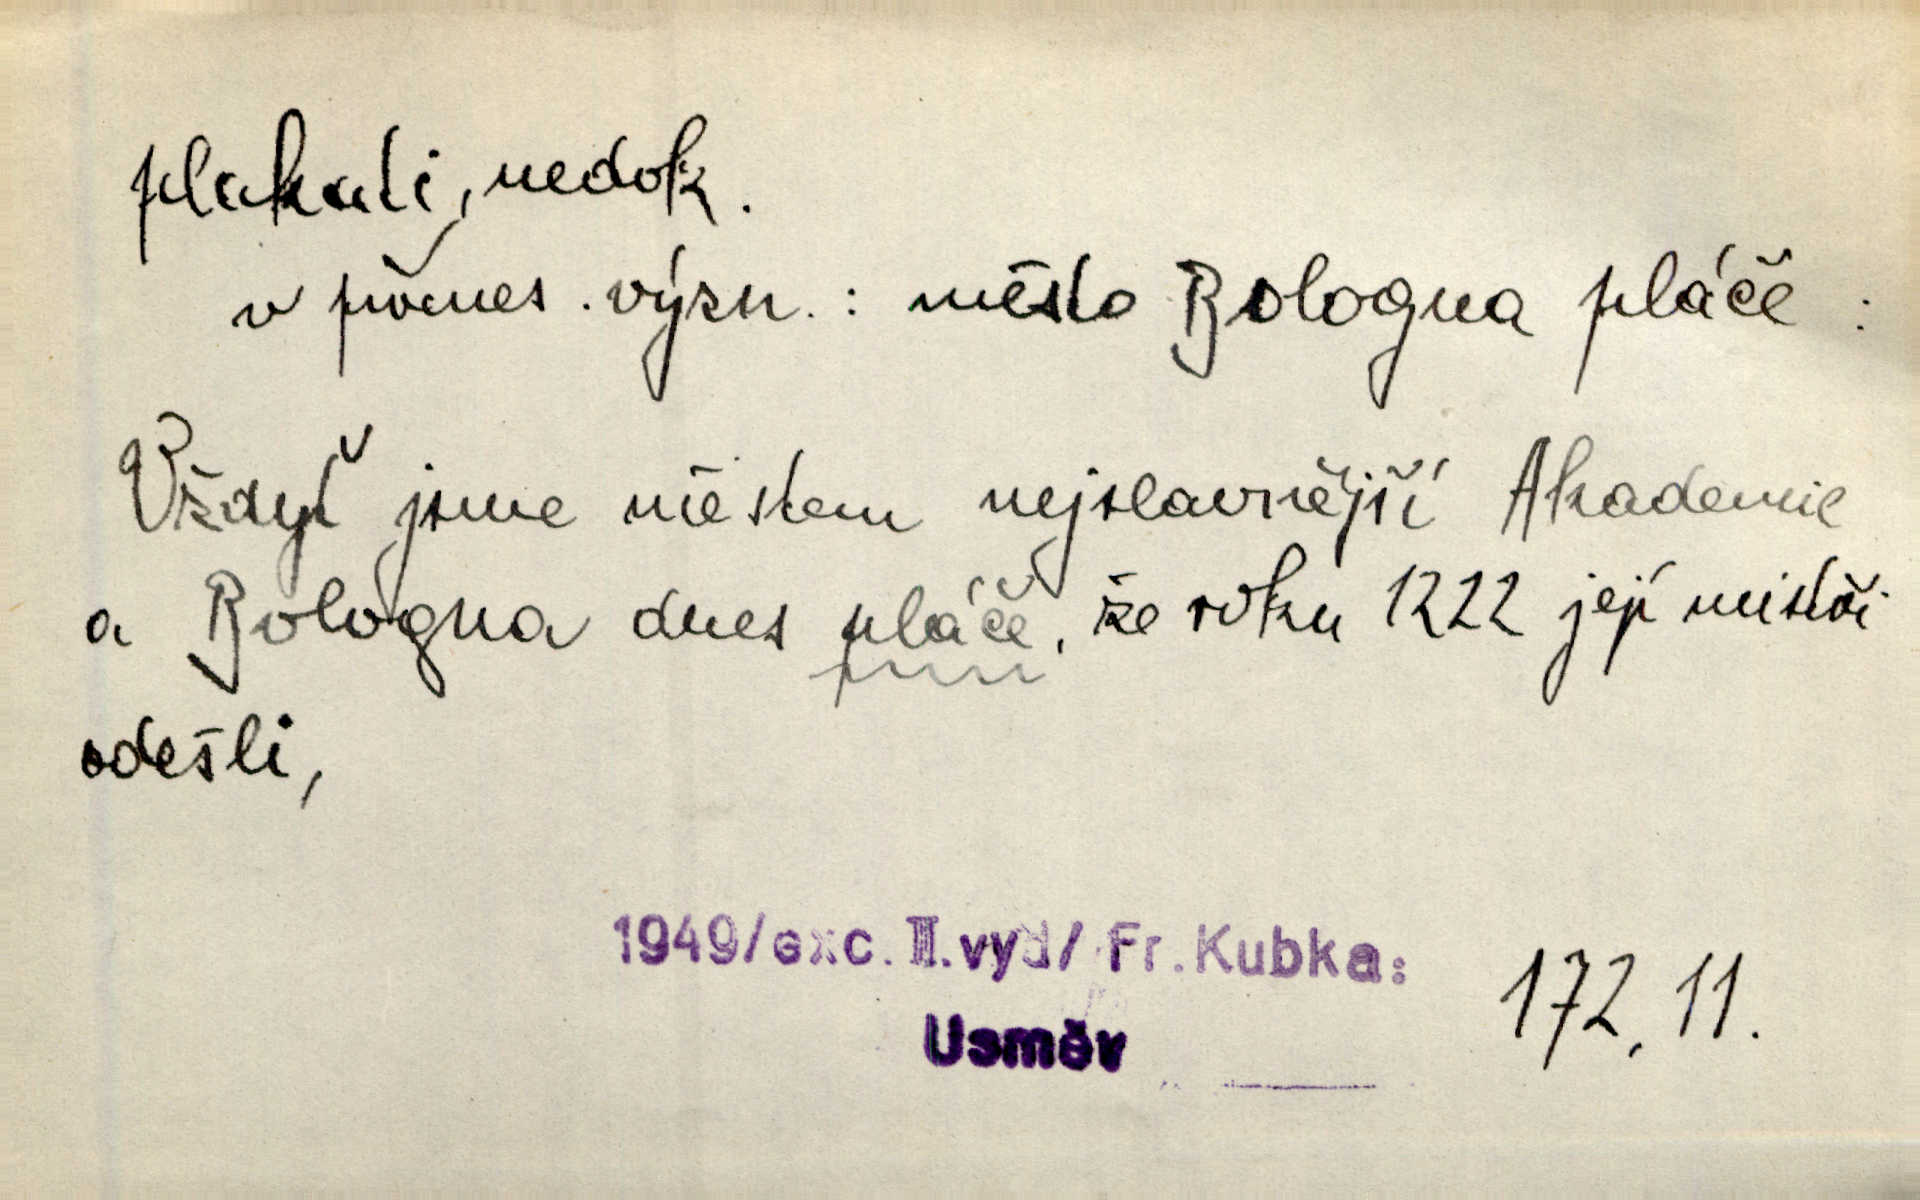 plakati, nedok.
v přenes. význ.: město Bologna pláče:
Vždyť jsme městem nejslavnější Akademie
a Bologna dnes pláče, že roku 1222 její mistři
odešli,
1949/exc. II.vyd/ Fr.Kubka:
Usměv
172, 11.